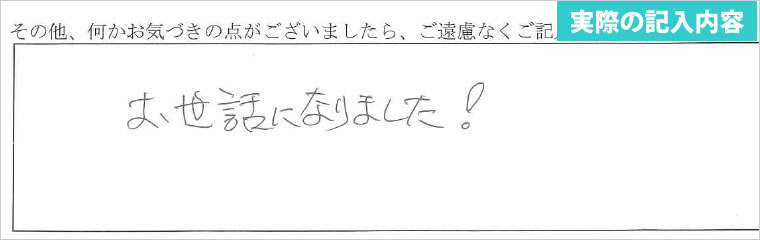 実際の記入内容
その他、何かお気づきの点がございましたら、ご遠慮なくご記
お世話になりました!